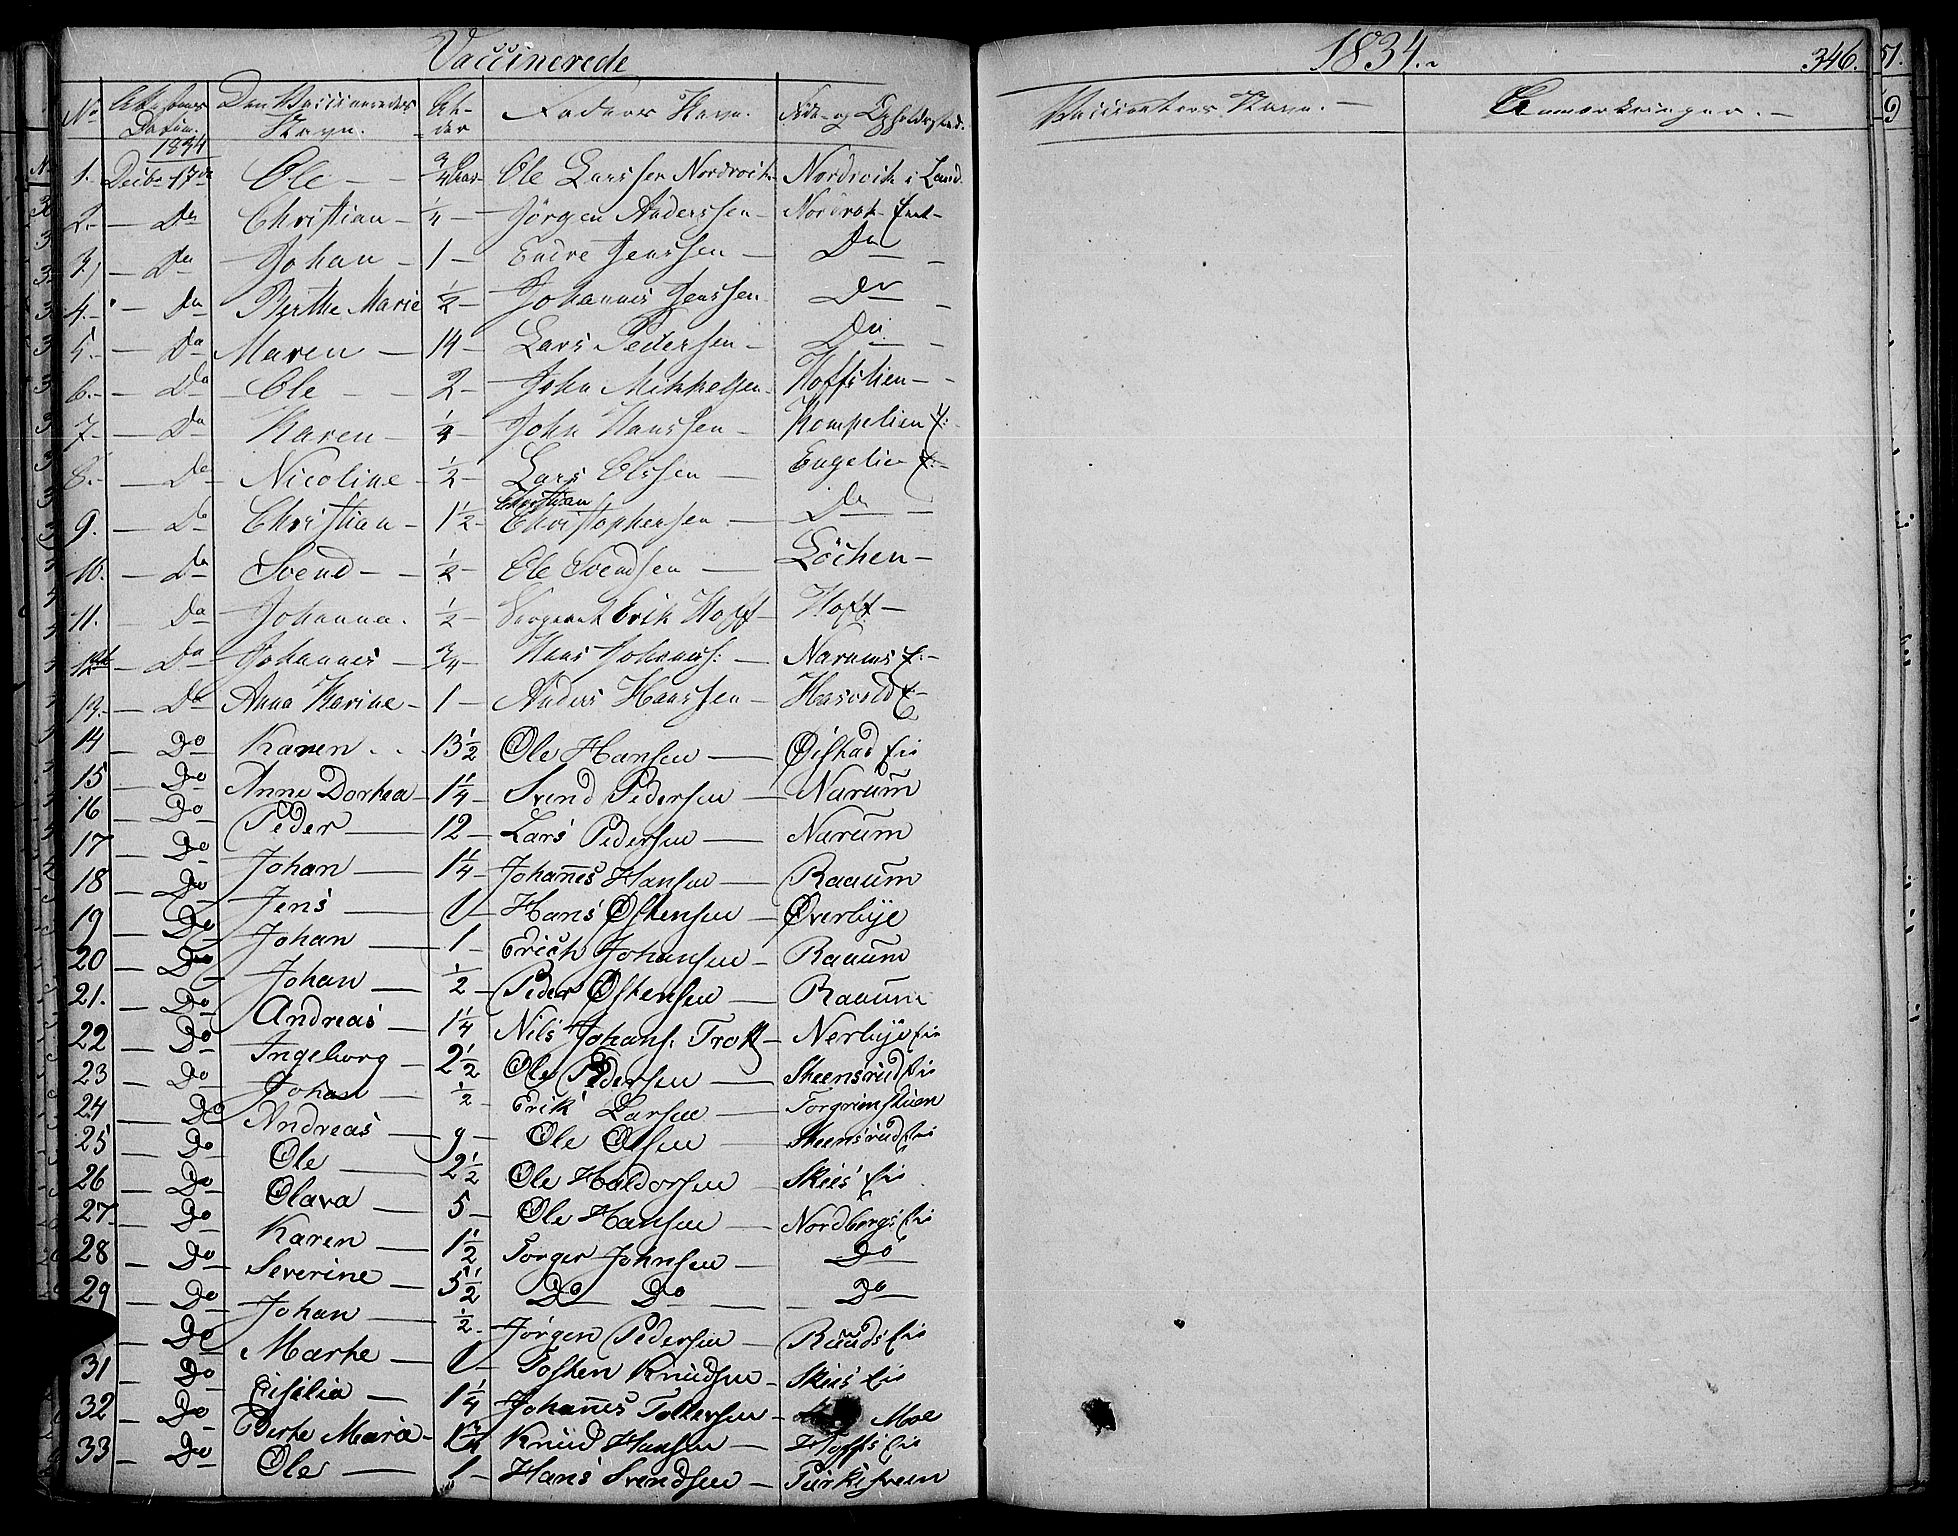 Vaccinerede
1834.
346.
No Attestens Datum. Den Vaccineredes Navn. Alder Faders Navn. Føde- og Opholdssted.
Vaccinators Navn. Anmærkninger.
1834
1. Decbr 17de Ole 3/4 Aar Ole Larssen Nordrvik Nordvik i Land
2. Do Christian 1/4 Jörgen Anderssen
3. Do Johan 1 Endre Jenssen Do
4. Do Berthe Marie 1/2 Johannes Jenssen Do
5. Do Maren 14 Lars Pederssen Do
6. Do Ole 2 John Mikkelsen Hoffslien
7. Do Karen 1/4 John Hanssen Kompelien E:
8. Do Nicoline 1/2 Lars Olssen Engelien E:
9. Do Christian 1 1/2 Christian Christophersen Do
10. Do Svend 1/2 Ole Svendsen Löchen
11. Do Johanna 1/2 Sergeant Erik Hoff Hoff
12 Do Johannes 3/4 Hans Johaness: Narums E:
13. Do Anna Karine 1 Anders Hanssen Hasvold E
14 Do Karen 13 1/2 Ole Hansen Øistad Eie
15 Do Anne Dorthea 1 1/4 Svend Pedersen Narum
16 Do Peder 12 Lars Pedersen Narum
17 Do Johan 1 1/4 Johannes Hansen Raaum
18 Do Jens 1 Hans Østensen Øverbye
19 Do Johan 1 Erich Johansen Raaum
20 Do Johan 1/2 Peder Østensen Raaum
21. Do Andreas 1 1/4 Nils Johans. Nerbye Eie
22 Do Ingeborg 2 1/2 Ole Pedersen Skeensrud Eie
23 Do Johan 1/2 Erik Larsen
24 Do Andreas 9 Ole Olsen Skeensrud Eie
25 Do Ole 2 1/2 Ole Haldorsen Skiés Eie
26 Do Olava 5 Ole Hansen Nordbergs Eie
27 Do Karen 1 1/2 Torger Johnsen Do
28 Do Severine 5 1/2 Do Do Do
29 Do Johan 1/2 Jørgen Pedersen Ruuds Eie
Do Marte 1 Tosten Knudsen Skiés Eie
31 Do Cisilia 1 1/4 Johannes Tollersen Moe
32 Do Berte Maria 1 3/4 Knud Hansen Hoffs Eie
33 Do Ole 1 Hans Svendsen